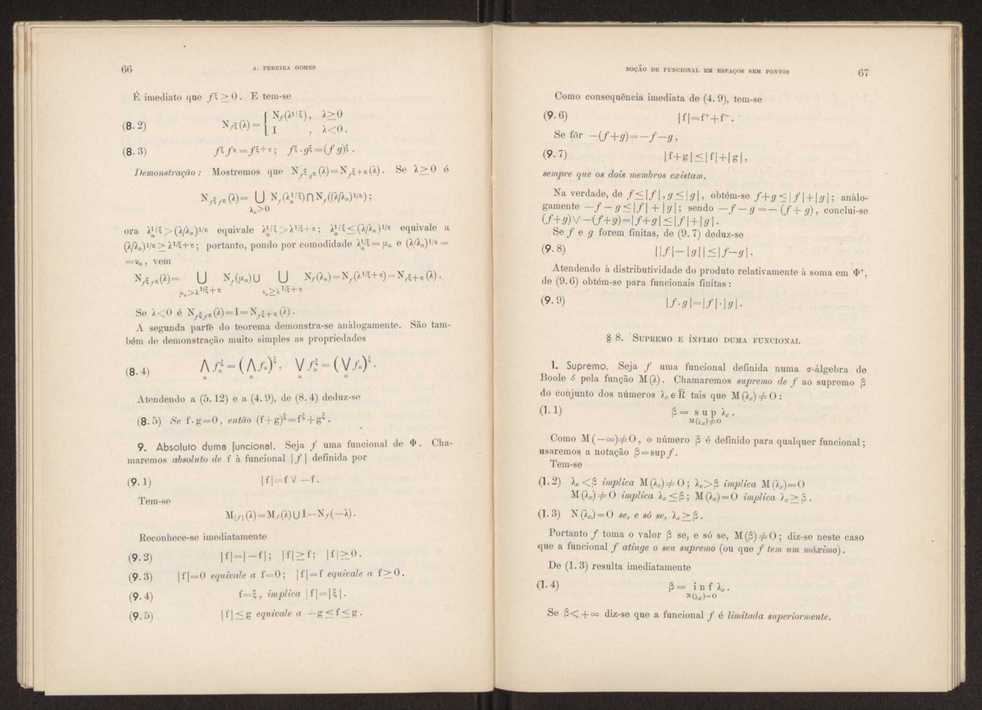 66
A. PEREIRA GOMES
É imediato que f^ξ ≥ 0. E tem-se
(8. 2) N_{f^ξ}(λ) = { N_f(λ^{1/ξ}), λ ≥ 0
I , λ < 0.
(8. 3) f^ξ f^π = f^{ξ+π}; f^ξ · g^ξ = (f g)^ξ.
Demonstração: Mostremos que N_{f^ξ f^π}(λ) = N_{f^{ξ+π}}(λ). Se λ ≥ 0 é
N_{f^ξ f^π}(λ) = ⋃ N_f(λ_α^{1/ξ}) ⋂ N_f((λ/λ_α)^{1/π});
λ_α>0
ora λ_α^{1/ξ} > (λ/λ_α)^{1/π} equivale λ_α^{1/ξ} > λ^{1/ξ+π}; λ_α^{1/ξ} ≤ (λ/λ_α)^{1/π} equivale a
(λ/λ_α)^{1/π} ≥ λ^{1/ξ+π}; portanto, pondo por comodidade λ_α^{1/ξ} = μ_α e (λ/λ_α)^{1/π} =
= ν_α, vem
N_{f^ξ f^π}(λ) = ⋃ N_f(μ_α) ⋃ ⋃ N_f(λ_α) = N_f(λ^{1/ξ+π}) = N_{f^{ξ+π}}(λ).
μ_α>λ^{1/ξ+π} ν_α≥λ^{1/ξ+π}
Se λ < 0 é N_{f^ξ f^π}(λ) = I = N_{f^{ξ+π}}(λ).
A segunda parte do teorema demonstra-se anàlogamente. São tam-
bém de demonstração muito simples as propriedades
(8. 4) ⋀_α f_α^ξ = (⋀_α f_α)^ξ, ⋁_α f_α^ξ = (⋁_α f_α)^ξ.
Atendendo a (5. 12) e a (4. 9), de (8. 4) deduz-se
(8. 5) Se f · g = 0, então (f + g)^ξ = f^ξ + g^ξ.
9. Absoluto duma funcional. Seja f uma funcional de Φ. Cha-
maremos absoluto de f à funcional |f| definida por
(9. 1) |f| = f ∨ −f.
Tem-se
M_{|f|}(λ) = M_f(λ) ⋃ I − N_f(−λ).
Reconhece-se imediatamente
(9. 2) |f| = |−f|; |f| ≥ f; |f| ≥ 0.
(9. 3) |f| = 0 equivale a f = 0; |f| = f equivale a f ≥ 0.
(9. 4) f = ξ, implica |f| = |ξ|.
(9. 5) |f| ≤ g equivale a −g ≤ f ≤ g.
NOÇÃO DE FUNCIONAL EM ESPAÇOS SEM PONTOS
67
Como consequência imediata de (4. 9), tem-se
(9. 6) |f| = f⁺ + f⁻.
Se fôr −(f + g) = −f − g,
(9. 7) |f + g| ≤ |f| + |g|,
sempre que os dois membros existam.
Na verdade, de f ≤ |f|, g ≤ |g|, obtém-se f + g ≤ |f| + |g|; anàlo-
gamente −f − g ≤ |f| + |g|; sendo −f − g = −(f + g), conclui-se
(f + g) ∨ −(f + g) = |f + g| ≤ |f| + |g|.
Se f e g forem finitas, de (9. 7) deduz-se
(9. 8) ||f| − |g|| ≤ |f − g|.
Atendendo à distributividade do produto relativamente à soma em Φ⁺,
de (9. 6) obtém-se para funcionais finitas:
(9. 9) |f · g| = |f| · |g|.
§ 8. SUPREMO E ÍNFIMO DUMA FUNCIONAL
1. Supremo. Seja f uma funcional definida numa σ-álgebra de
Boole 𝒢 pela função M(λ). Chamaremos supremo de f ao supremo β
do conjunto dos números λ_α ∈ R̄ tais que M(λ_α) ≠ O:
(1. 1) β = sup λ_α.
M(λ_α)≠O
Como M(−∞) ≠ O, o número β é definido para qualquer funcional;
usaremos a notação β = sup f.
Tem-se
(1. 2) λ_α < β implica M(λ_α) ≠ O; λ_α > β implica M(λ_α) = O
M(λ_α) ≠ O implica λ_α ≤ β; M(λ_α) = O implica λ_α ≥ β.
(1. 3) N(λ_α) = O se, e só se, λ_α ≥ β.
Portanto f toma o valor β se, e só se, M(β) ≠ O; diz-se neste caso
que a funcional f atinge o seu supremo (ou que f tem um máximo).
De (1. 3) resulta imediatamente
(1. 4) β = inf λ_α.
N(λ_α)=O
Se β < +∞ diz-se que a funcional f é limitada superiormente.